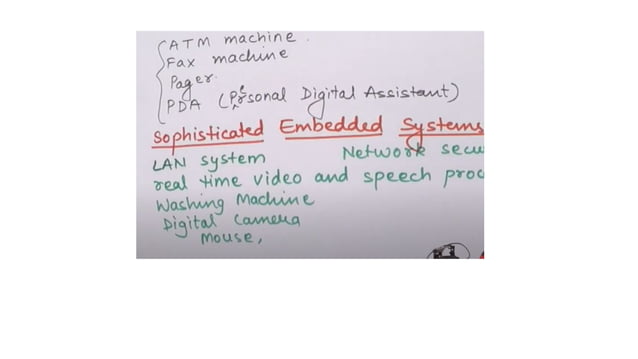 ATM machine.
Fax machine
Pager.
PDA (Personal Digital Assistant)
Sophisticated Embedded Systems
LAN system Network secu
real time video and speech proc
Washing Machine
Digital Camera
Mouse,